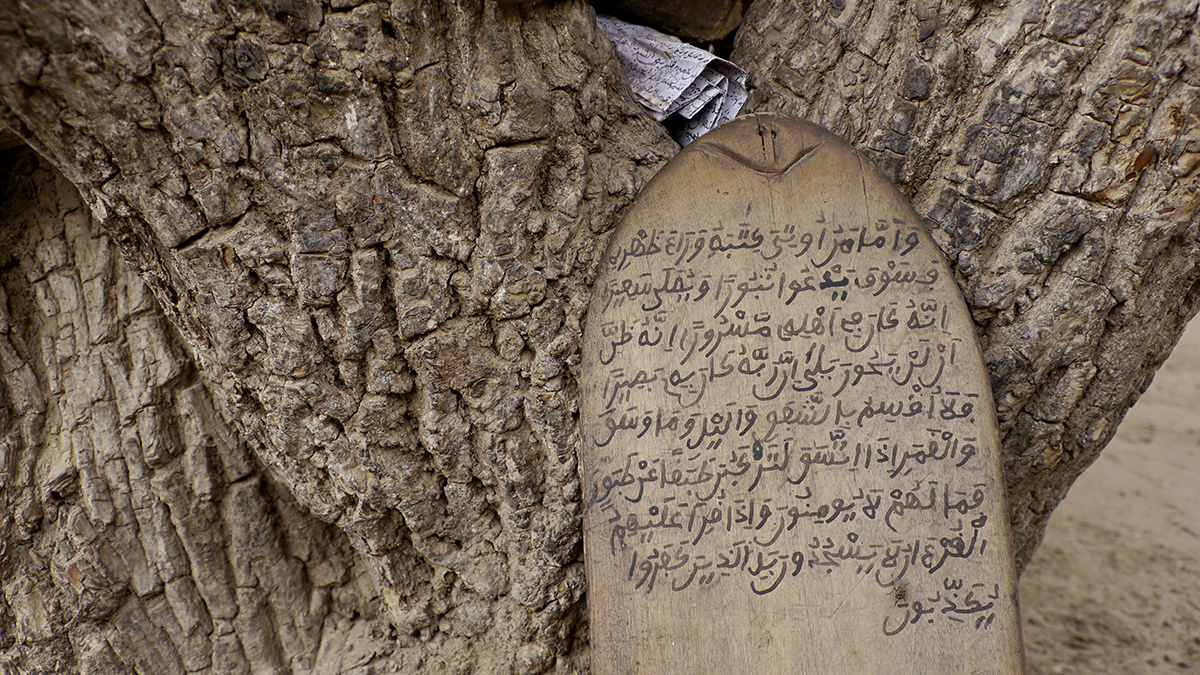 وَأَمَّا مَنُ اوتِيَ كِتَٰبَهُ وَرَآءَ ظَهْرِهِ
فَسَوْفَ يَدْعُوا ثُبُورًا وَيُصَلَّىٰ سَعِيرًا
انَّهُ كَانَ فِي أَهْلِهِ مَسْرُورًا انَّهُ ظَنَّ
أَن لَّنْ يَحُورَ بَلَىٰ إِنَّ رَبَّهُ كَانَ بِهِ بَصِيرًا
فَلَا أُقْسِمُ بِالشَّفَقِ وَالَّيْلِ وَمَا وَسَقَ
وَالْقَمَرِ إِذَا اتَّسَقَ لَتَرْكَبُنَّ طَبَقًا عَن طَبَقٍ
فَمَا لَهُمْ لَا يُومِنُونَ وَإِذَا قُرِئَ عَلَيْهِمُ
الْقُرْءَانُ لَا يَسْجُدُونَ بَلِ الَّذِينَ كَفَرُوا
يُكَذِّبُونَ